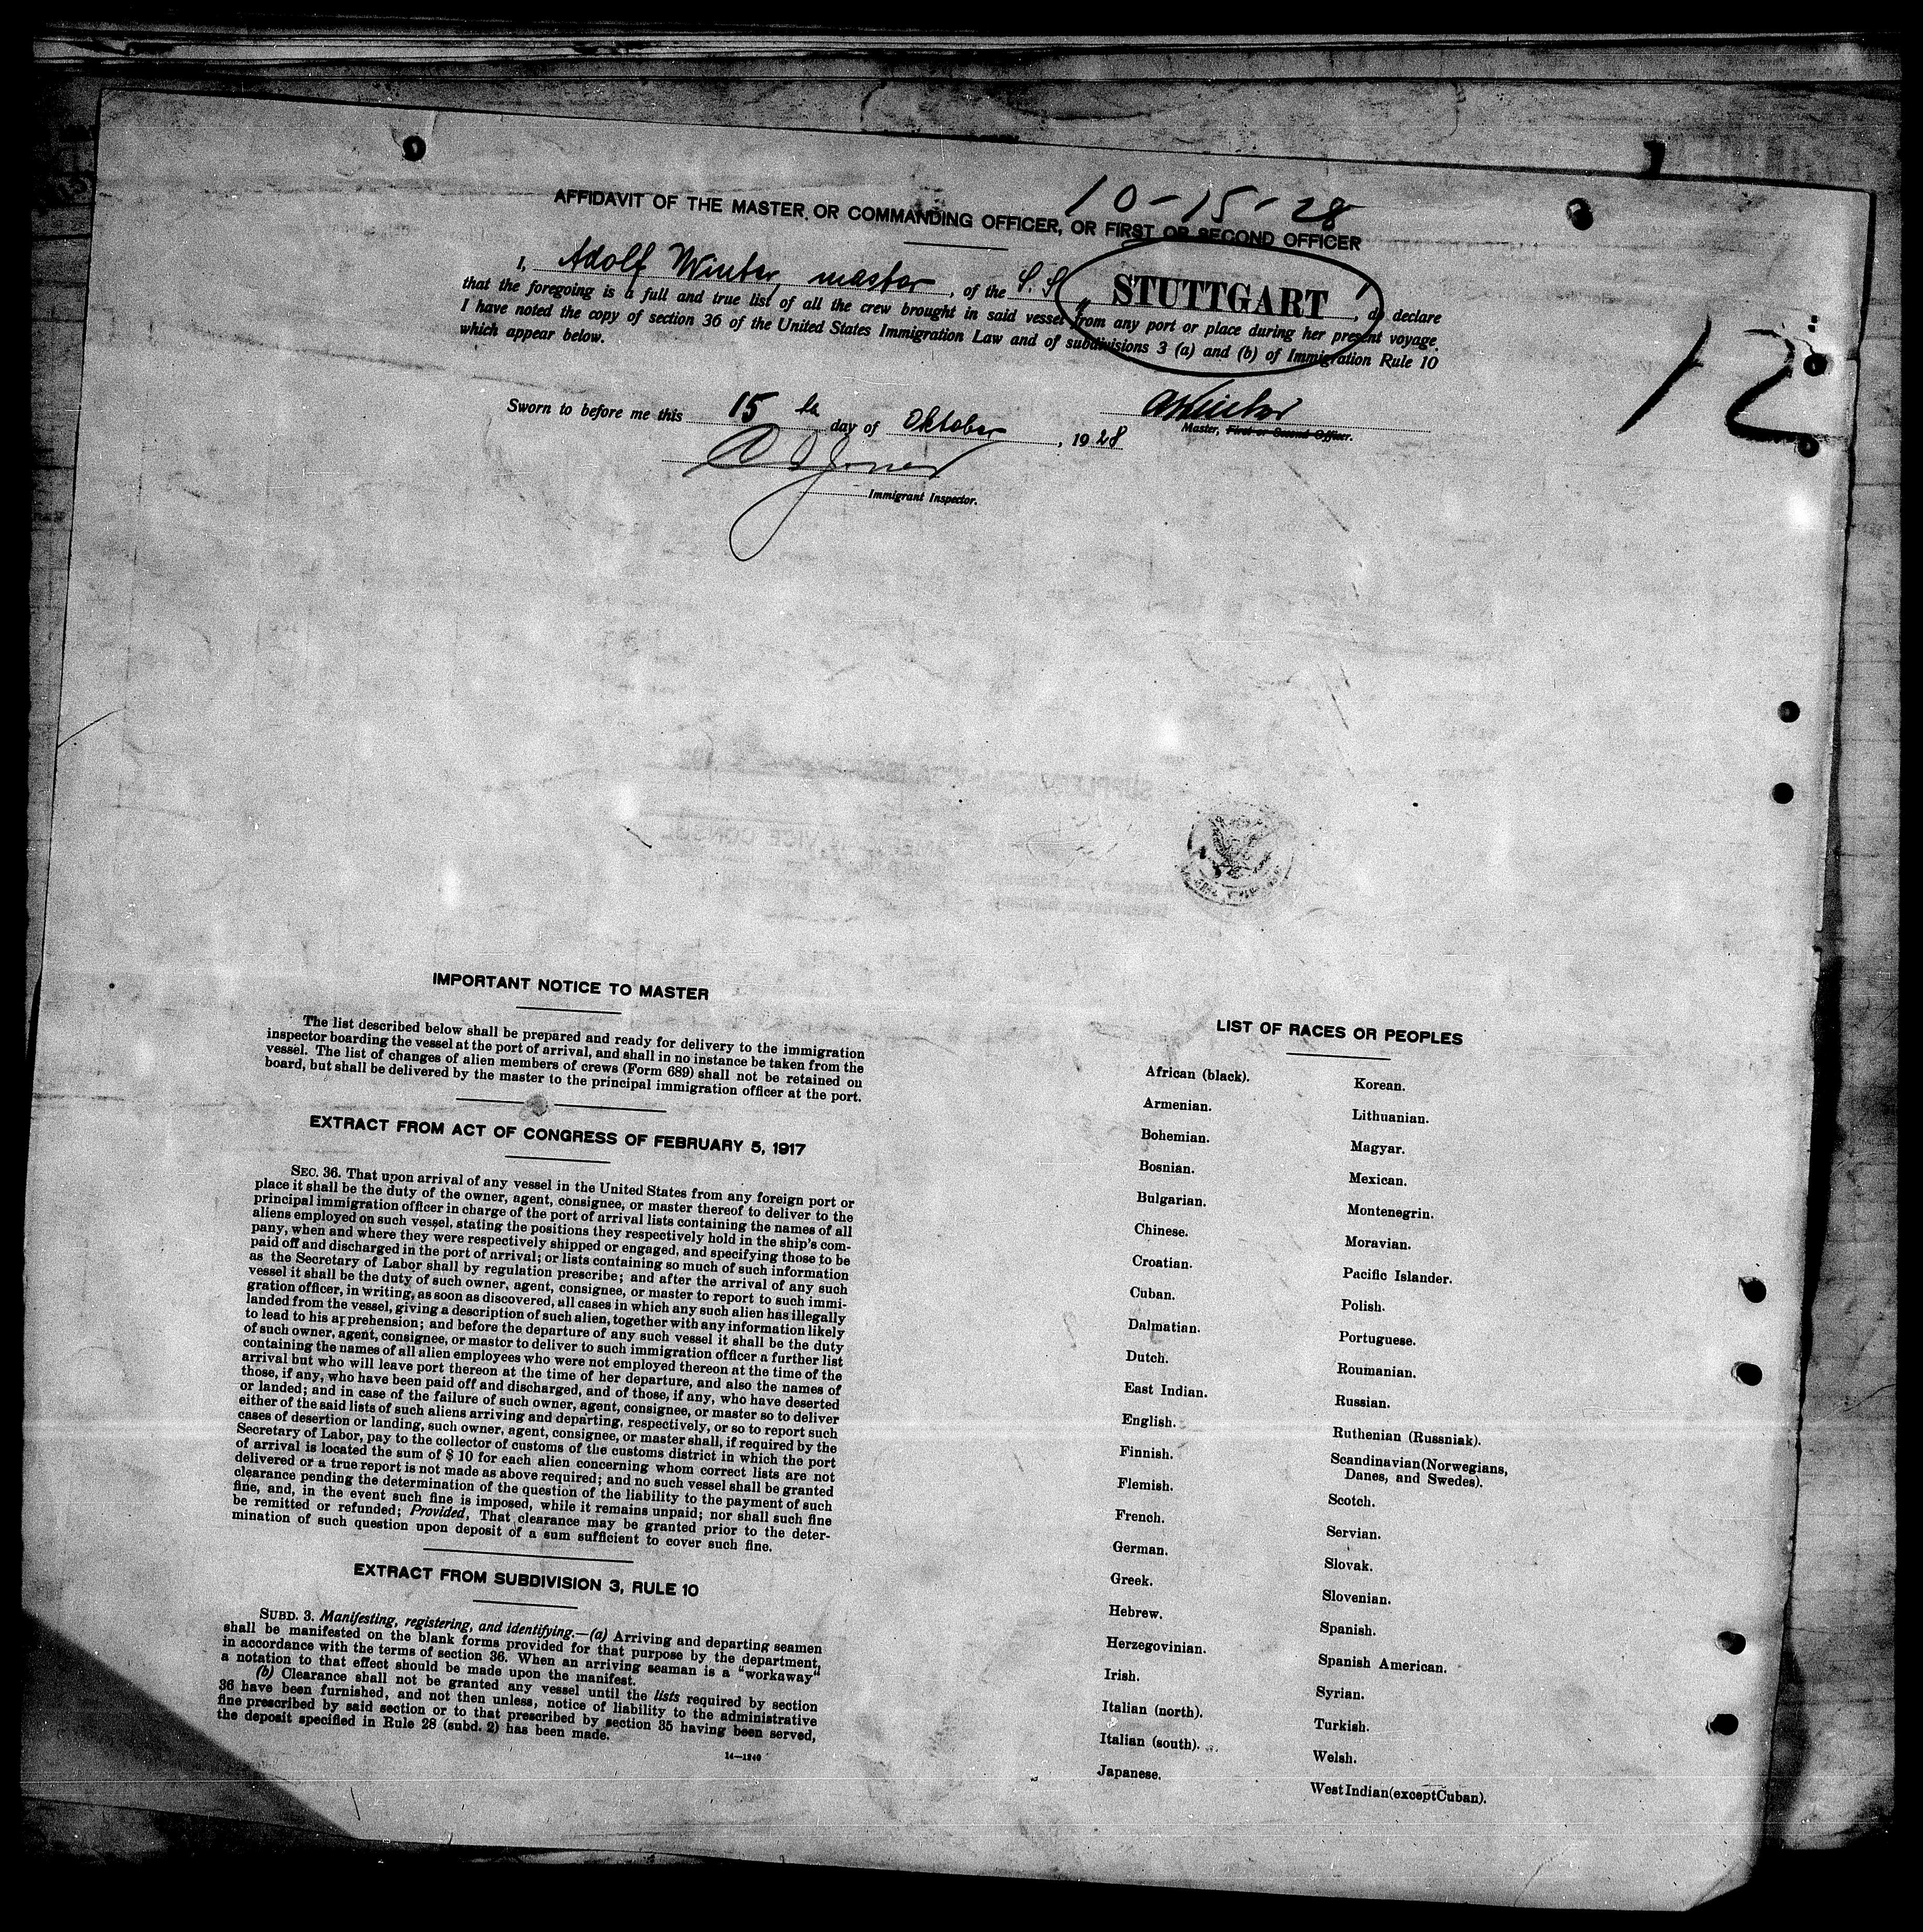 10-15-28
AFFIDAVIT OF THE MASTER, OR COMMANDING OFFICER, OR FIRST OR SECOND OFFICER
I, Adolf Winter, master, of the S. S. „STUTTGART", do declare
that the foregoing is a full and true list of all the crew brought in said vessel from any port or place during her present voyage.
I have noted the copy of section 36 of the United States Immigration Law and of subdivisions 3 (a) and (b) of Immigration Rule 10
which appear below.
12
AWinter
Master, First or Second Officer.
Sworn to before me this 15 th day of Oktober, 1928
Jones
Immigrant Inspector.
IMPORTANT NOTICE TO MASTER
The list described below shall be prepared and ready for delivery to the immigration
inspector boarding the vessel at the port of arrival, and shall in no instance be taken from the
vessel. The list of changes of alien members of crews (Form 689) shall not be retained on
board, but shall be delivered by the master to the principal immigration officer at the port.
EXTRACT FROM ACT OF CONGRESS OF FEBRUARY 5, 1917
SEC. 36. That upon arrival of any vessel in the United States from any foreign port or
place it shall be the duty of the owner, agent, consignee, or master thereof to deliver to the
principal immigration officer in charge of the port of arrival lists containing the names of all
aliens employed on such vessel, stating the positions they respectively hold in the ship's com-
pany, when and where they were respectively shipped or engaged, and specifying those to be
paid off and discharged in the port of arrival; or lists containing so much of such information
as the Secretary of Labor shall by regulation prescribe; and after the arrival of any such
vessel it shall be the duty of such owner, agent, consignee, or master to report to such immi-
gration officer, in writing, as soon as discovered, all cases in which any such alien has illegally
landed from the vessel, giving a description of such alien, together with any information likely
to lead to his apprehension; and before the departure of any such vessel it shall be the duty
of such owner, agent, consignee, or master to deliver to such immigration officer a further list
containing the names of all alien employees who were not employed thereon at the time of the
arrival but who will leave port thereon at the time of her departure, and also the names of
those, if any, who have been paid off and discharged, and of those, if any, who have deserted
or landed; and in case of the failure of such owner, agent, consignee, or master so to deliver
either of the said lists of such aliens arriving and departing, respectively, or so to report such
cases of desertion or landing, such owner, agent, consignee, or master shall, if required by the
Secretary of Labor, pay to the collector of customs of the customs district in which the port
of arrival is located the sum of $ 10 for each alien concerning whom correct lists are not
delivered or a true report is not made as above required; and no such vessel shall be granted
clearance pending the determination of the question of the liability to the payment of such
fine, and, in the event such fine is imposed, while it remains unpaid; nor shall such fine
be remitted or refunded; Provided, That clearance may be granted prior to the deter-
mination of such question upon deposit of a sum sufficient to cover such fine.
EXTRACT FROM SUBDIVISION 3, RULE 10
SUBD. 3. Manifesting, registering, and identifying.—(a) Arriving and departing seamen
shall be manifested on the blank forms provided for that purpose by the department,
in accordance with the terms of section 36. When an arriving seaman is a "workaway"
a notation to that effect should be made upon the manifest.
(b) Clearance shall not be granted any vessel until the lists required by section
36 have been furnished, and not then unless, notice of liability to the administrative
fine prescribed by said section or to that prescribed by section 35 having been served,
the deposit specified in Rule 28 (subd. 2) has been made.
14—1240
LIST OF RACES OR PEOPLES
African (black).
Armenian.
Bohemian.
Bosnian.
Bulgarian.
Chinese.
Croatian.
Cuban.
Dalmatian.
Dutch.
East Indian.
English.
Finnish.
Flemish.
French.
German.
Greek.
Hebrew.
Herzegovinian.
Irish.
Italian (north).
Italian (south).
Japanese.
Korean.
Lithuanian.
Magyar.
Mexican.
Montenegrin.
Moravian.
Pacific Islander.
Polish.
Portuguese.
Roumanian.
Russian.
Ruthenian (Russniak).
Scandinavian(Norwegians,
Danes, and Swedes).
Scotch.
Servian.
Slovak.
Slovenian.
Spanish.
Spanish American.
Syrian.
Turkish.
Welsh.
West Indian(except Cuban).